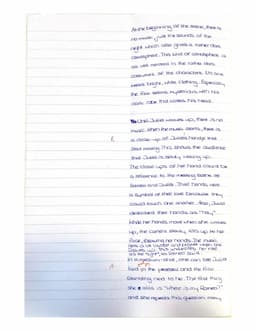 At the beginning of the scene, there is
no music just the sounds of the
night which also gives a rather dark
atmosphere. This kind of atmosphere is
as well created in the rather dark
costumes of the characters. No one
wears bright, white clothing. Especially
the friar seems mysterious with his
dark robe that covers his head.
Until Juliet wakes up, there is no
music. When the music starts, there is
a close-up of Juliet's hands that
start moving. This shows the audience
that Juliet is slowly waking up.
The close ups of her hand could be
a reference to the meeting scene of
Romeo and Juliet. Their hands were
a symbol of their love because they
could touch one another. Also, Juliet
described their hands as "holy".
While her hands move when she wakes
up, the camera slowly goes up to her
face, following her hands. The music
gets a bit louder and brighter when she
opens up. This underlines her role
as the light, as Romeo said.
In a medium-shot, one can see Juliet
tied in the and the friar
standing next to her. The first thing
she asks is "Where is my Romeo?"
and she repeats this question many